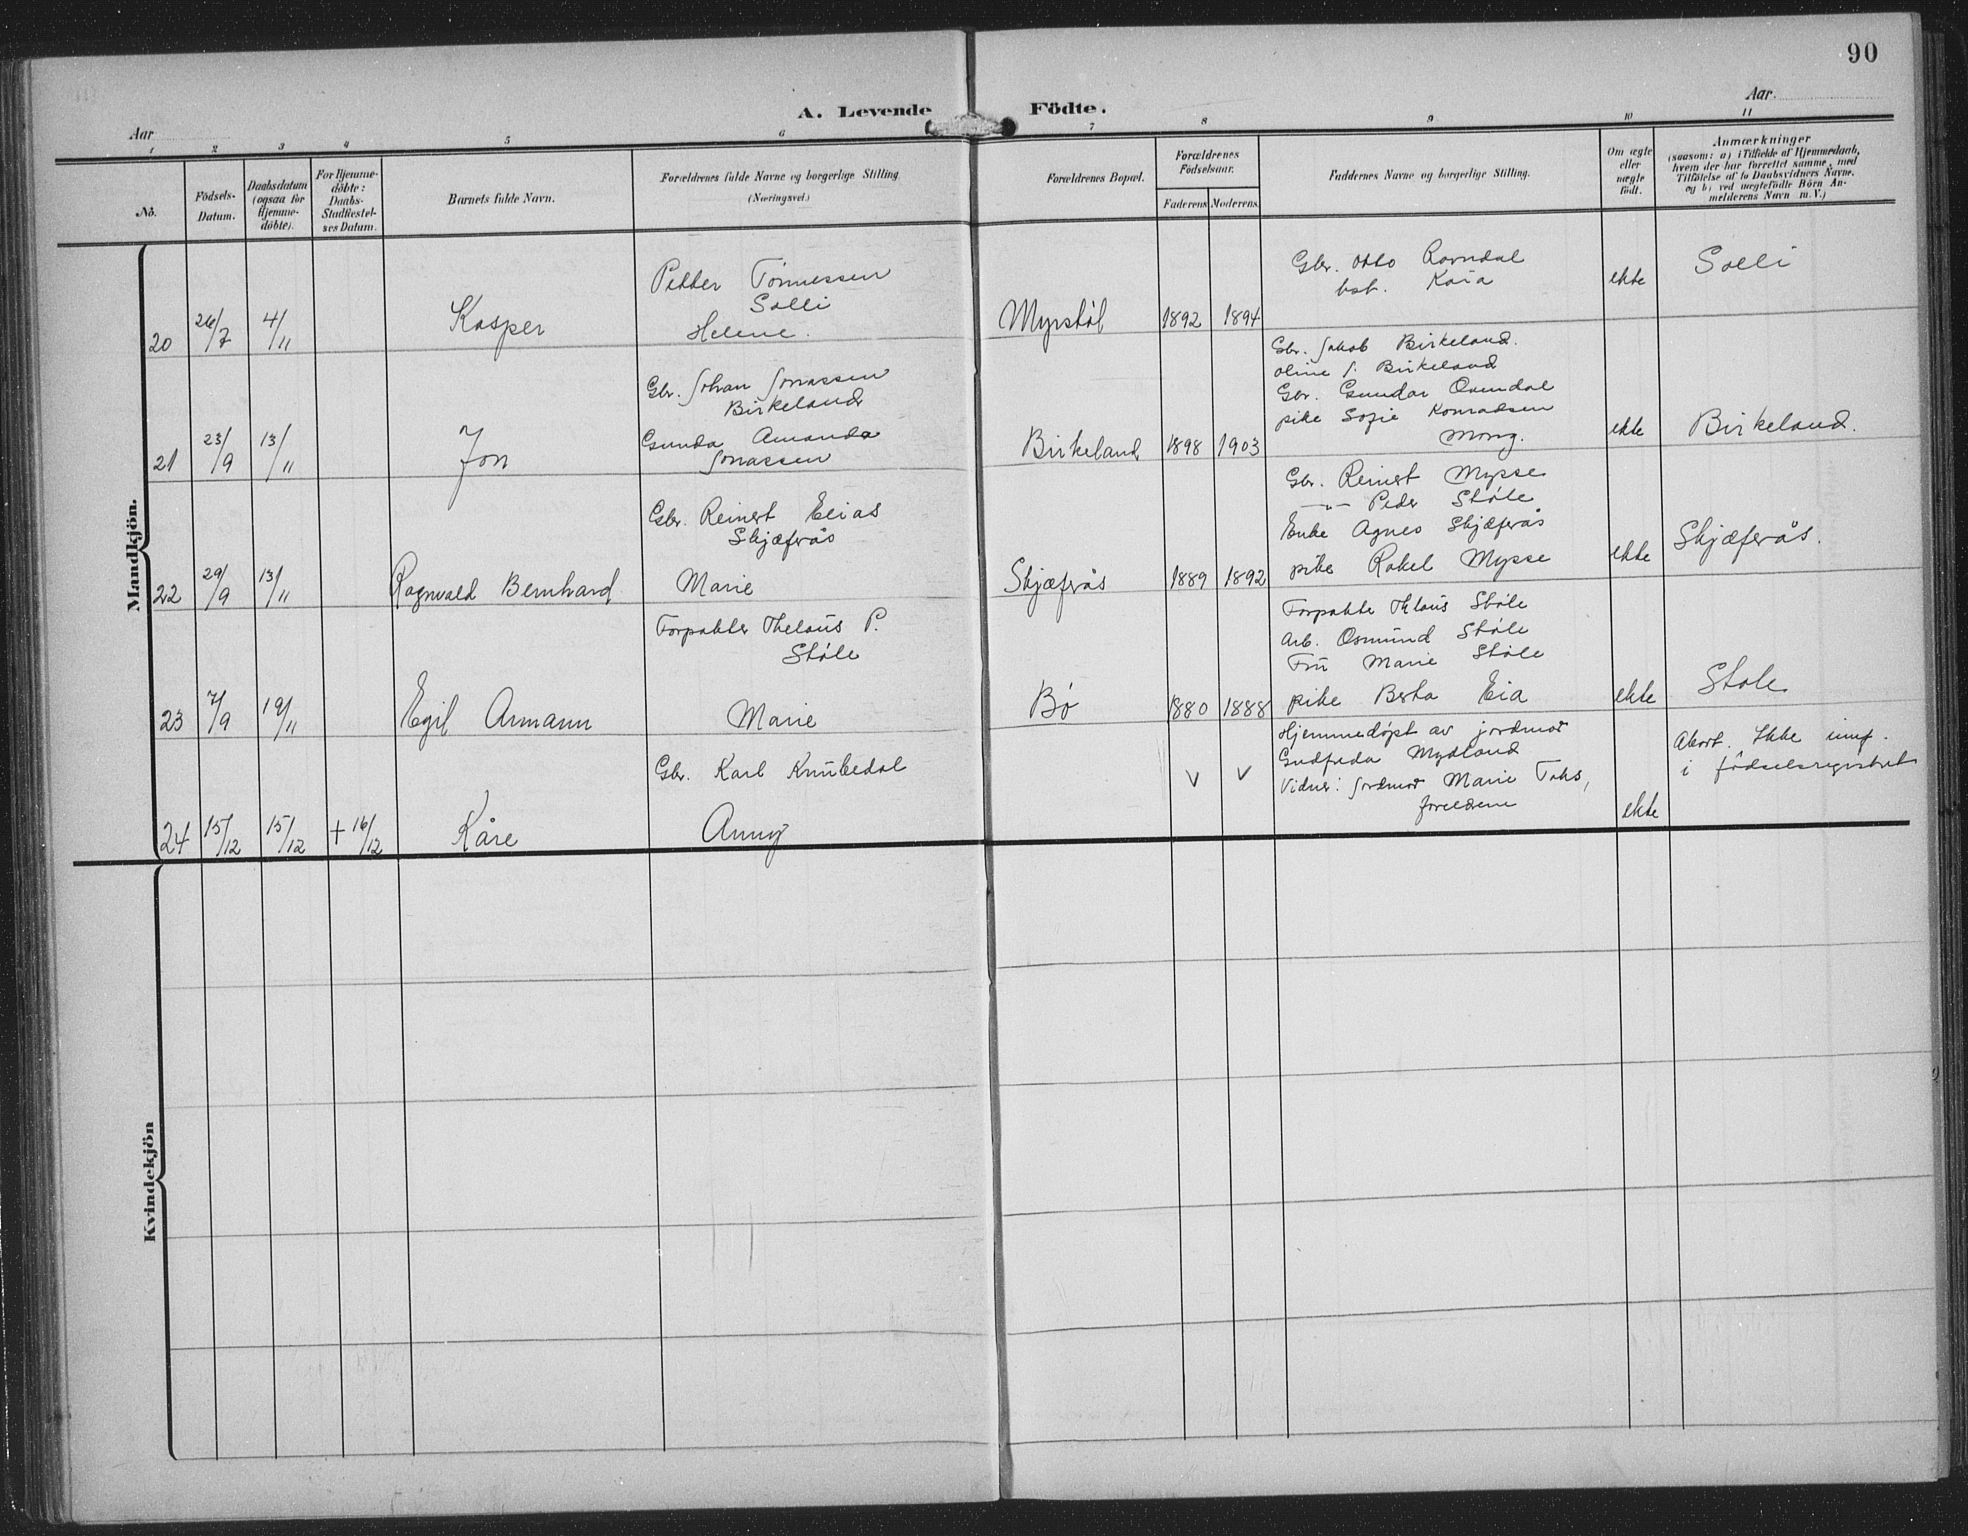 90
A. Levende Födte.
Aar
Aar.
1 2 3 4 5 6 7 8 9 10 11
No.
Födsels-
Datum.
Daabsdatum
(ogsaa for
Hjemme-
döbte).
For Hjemme-
döbte:
Daabs-
Stadfæstel-
ses Datum.
Barnets fulde Navn.
Forældrenes fulde Navne og borgerlige Stilling
(Næringsvei.)
Forældrenes Bopæl.
Forældrenes
Födselsaar.
Faderens Moderens.
Faddernes Navne og borgerlige Stilling.
Om ægte
eller
uægte
födt.
Anmærkninger
(saasom: a) i Tilfælde af Hjemmedaab,
hvem der har forrettet samme, med
Tilföielse af to Daabsvidners Navne,
og b) ved uægtefödte Börn An-
melderens Navn m. V.)
Mandkjön.
20 26/7 4/11 Kasper
Petter Tønnessen
Solli
Helene.
Myrstøl 1892 1894
Gbr. Otto Ravndal
hst. Kaia
ekte
Solli
21 23/9 13/11 Jon
Gbr. Johan Jonassen
Birkeland
Gunda Amanda
Jonassen
Birkeland 1898 1903
Gbr. Jakob Birkeland.
Oline J. Birkeland
Gbr. Gundar Ovendal
pike Sofie Konradsen
Mong.
ekte
Birkeland.
22 29/9 13/11 Ragnvald Bernhard
Gbr. Reinert Elias
Skjæferås
Marie
Skjæferås 1889 1892
Gbr. Reinert Mysse
—"— Peder Støle
Enke Agnes Skjæferås
pike Rakel Mysse
ekte
Skjæferås.
23 7/9 19/11 Egil Armann
Forpakter Thelaus P.
Støle
Marie
Bø 1880 1888
Forpakter Thlaus Støle
Arb. Osmund Støle
Fru Marie Støle
pike Berta Eia
ekte
Støle
24 15/12 15/12 + 16/12 Kåre
Gbr. Karl Knubedal
Anny
v v
Hjemmedøpt av jordmor
Gudfrida Mydland
Vidner: Jordmor Marie Taks,
foreldrene
ekte
Abort. Ikke innf.
i fødselsregistret
Kvindekjön